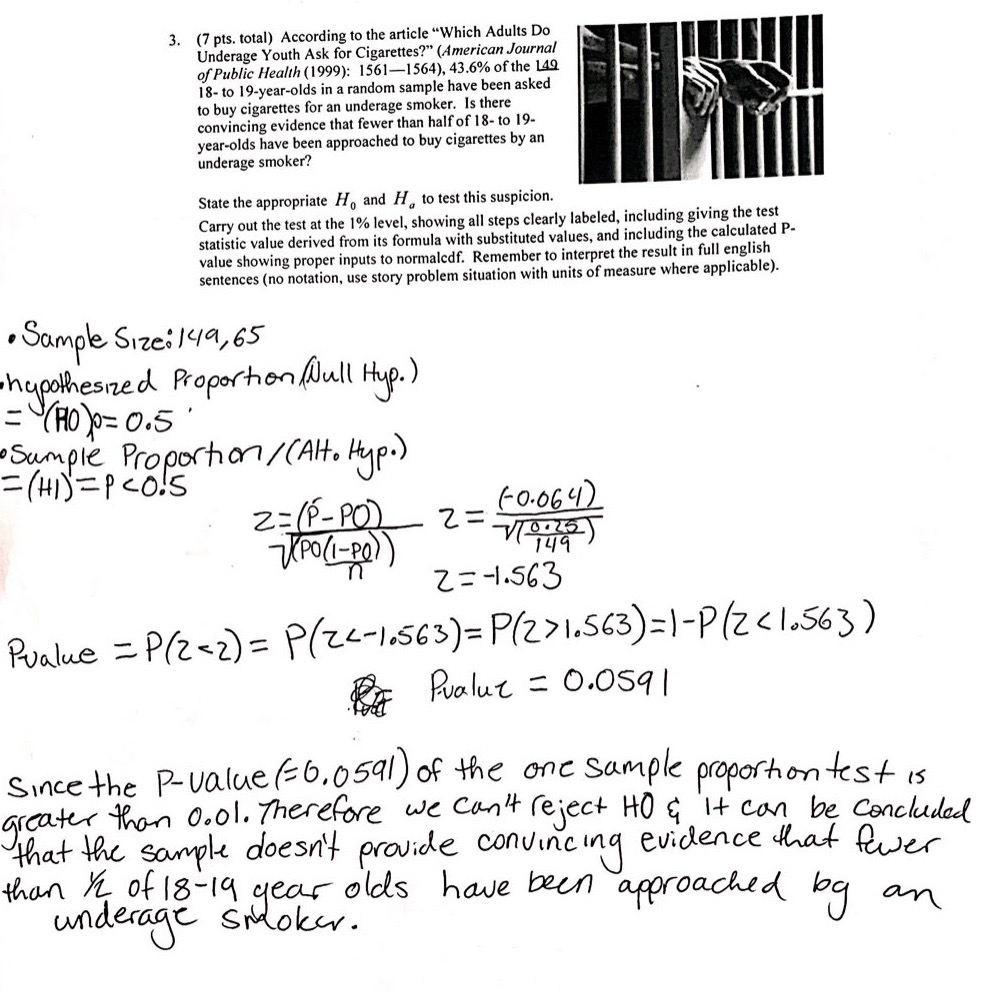 3. (7 pts. total) According to the article “Which Adults Do
Underage Youth Ask for Cigarettes?” (American Journal
of Public Health (1999): 1561—1564), 43.6% of the 149
18- to 19-year-olds in a random sample have been asked
to buy cigarettes for an underage smoker. Is there
convincing evidence that fewer than half of 18- to 19-
year-olds have been approached to buy cigarettes by an
underage smoker?
State the appropriate H₀ and Hₐ to test this suspicion.
Carry out the test at the 1% level, showing all steps clearly labeled, including giving the test
statistic value derived from its formula with substituted values, and including the calculated P-
value showing proper inputs to normalcdf. Remember to interpret the result in full english
sentences (no notation, use story problem situation with units of measure where applicable).
• Sample Size: 149, 65
• hypothesized Proportion (Null Hyp.)
= (HO) p = 0.5
• Sample Proportion / (Alt. Hyp.)
= (H1) = P < 0.5
z = (p̂ - PO) / √(PO(1-PO)/n) z = (-0.064) / √(0.25/149)
z = -1.563
Pvalue = P(z < z) = P(z < -1.563) = P(z > 1.563) = 1 - P(z < 1.563)
Pvalue = 0.0591
Since the P-value (=0.0591) of the one sample proportion test is
greater than 0.01. Therefore we can't reject HO & it can be concluded
that the sample doesn't provide convincing evidence that fewer
than 1/2 of 18-19 year olds have been approached by an
underage smoker.